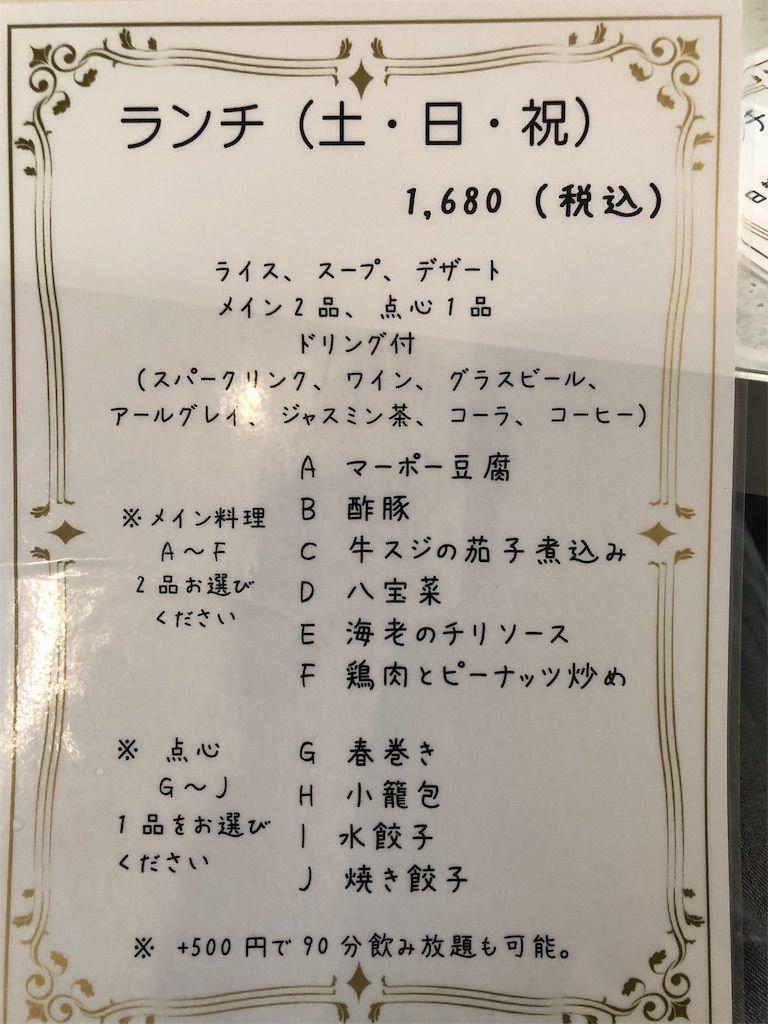 ランチ（土・日・祝）
1,680（税込）
ライス、スープ、デザート
メイン2品、点心1品
ドリング付
（スパークリンク、ワイン、グラスビール、
アールグレイ、ジャスミン茶、コーラ、コーヒー）
※メイン料理
A～F
2品お選び
ください
A マーポー豆腐
B 酢豚
C 牛スジの茄子煮込み
D 八宝菜
E 海老のチリソース
F 鶏肉とピーナッツ炒め
※ 点心
G～J
1品をお選び
ください
G 春巻き
H 小籠包
I 水餃子
J 焼き餃子
※ +500円で90分飲み放題も可能。